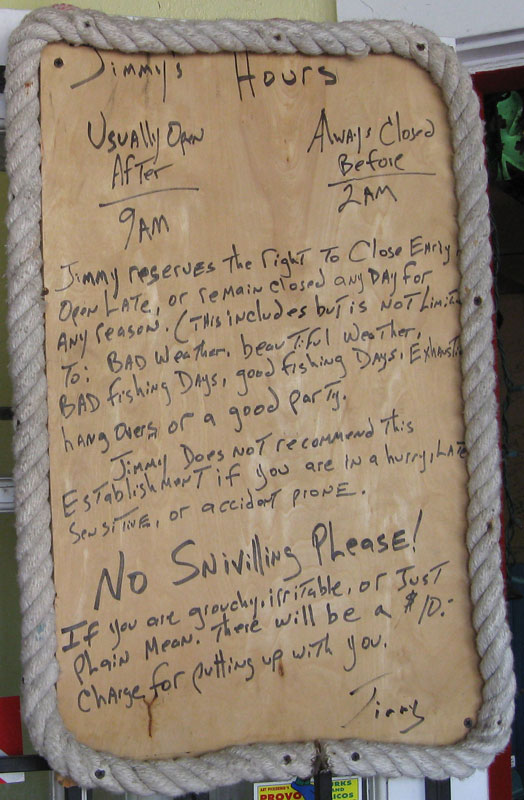 Jimmys Hours
Usually Open
After
9AM
Always Closed
Before
2AM
Jimmy reserves the right To Close Early
Open Late, or remain closed any Day for
Any reason. (This includes but is Not Limited
To: BAD Weather, beautiful Weather,
BAD fishing Days, good fishing Days, Exhaustion
hang overs or a good party.
Jimmy Does Not recommend this
Establishment if you are in a hurry, Late
Sensitive, or accident prone.
No Snivilling Please!
If you are grouchy, irritable, or Just
Plain Mean. There will be a $10.-
Charge for putting up with you.
Jimmy
PROVO